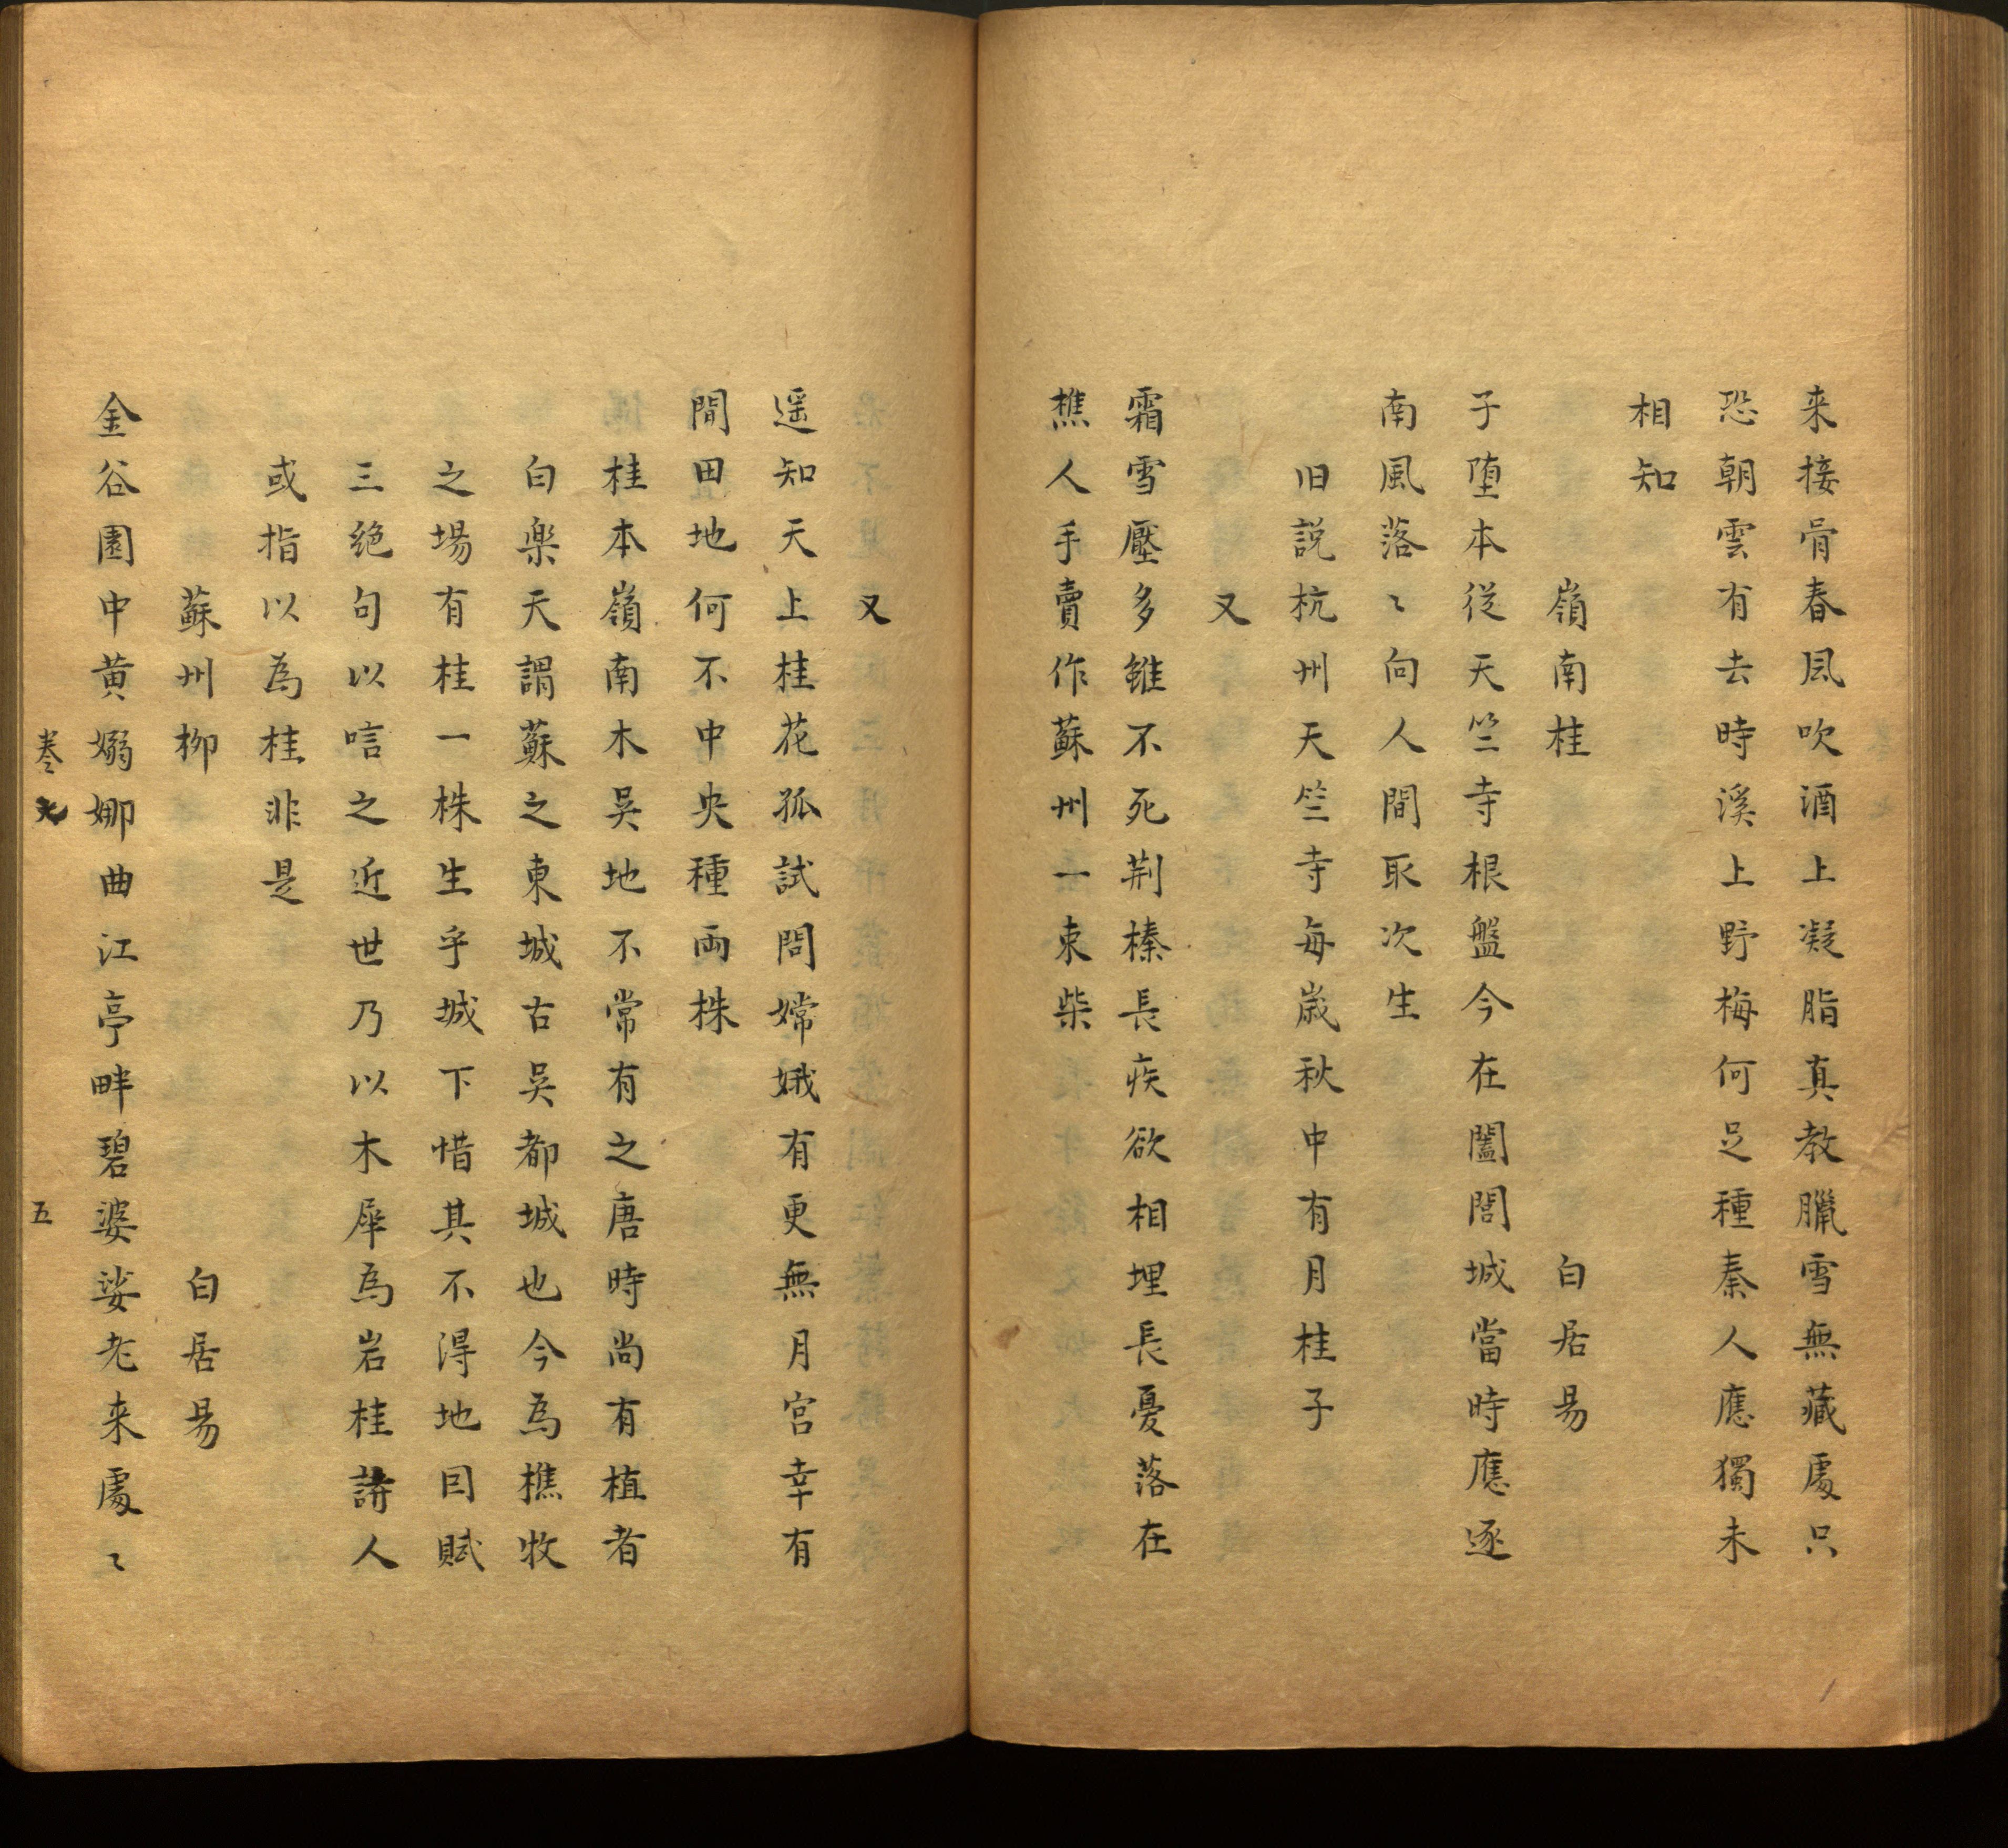 来接骨春風吹酒上凝脂真教臘雪無藏處只
恐朝雲有去時溪上野梅何足種秦人應獨未
相知
嶺南桂 白居易
子堕本從天竺寺根盤今在闔閭城當時應逐
南風落〻向人間取次生
旧説杭州天竺寺每歳秋中有月桂子
又
霜雪壓多雖不死荆榛長疾欲相埋長憂落在
樵人手賣作蘇州一束柴
又
遥知天上桂花孤試問嫦娥有更無月宮幸有
間田地何不中央種両株
桂本嶺南木吴地不常有之唐時尚有植者
白楽天謂蘇之東城古吴都城也今為樵牧
之場有桂一株生乎城下惜其不得地囙賦
三絶句以唁之近世乃以木犀為岩桂詩人
或指以為桂非是
蘇州柳 白居易
金谷園中黄嫋娜曲江亭畔碧婆娑老来處〻
巻九 五